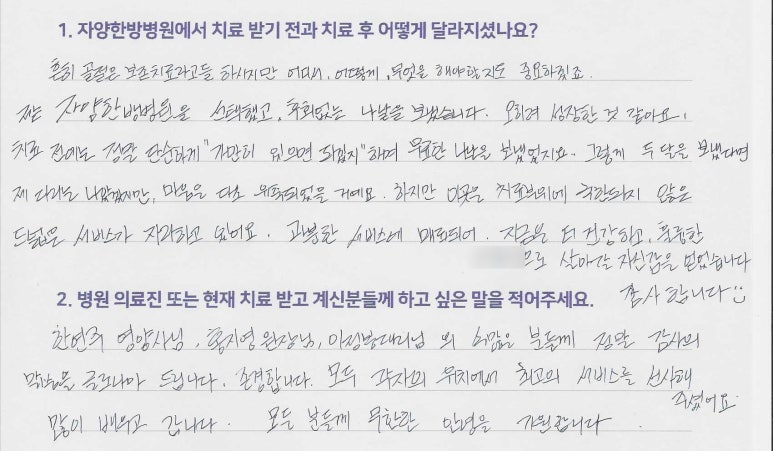 1. 자양한방병원에서 치료 받기 전과 치료 후 어떻게 달라지셨나요?
흔히 골절은 보존치료라고들 하시지만 어디서, 어떻게, 무엇을 해야할지도 중요하겠죠.
저는 자양한방병원을 선택했고, 후회없는 나날을 보냈습니다. 오히려 성장한 것 같아요.
치료 전에는 정말 단순하게 "가만히 있으면 되겠지" 하며 무료한 나날을 보냈었지요. 그렇게 두 달을 보냈다면
제 다리는 나았겠지만, 마음은 다소 위축되었을 거예요. 하지만 이곳은 치료부위에 국한되지 않은
드넓은 서비스가 자리하고 있어요. 과분한 서비스에 매료되어. 지금은 더 건강하고, 훌륭한
으로 살아갈 자신감을 얻었습니다
감사합니다
2. 병원 의료진 또는 현재 치료 받고 계신분들께 하고 싶은 말을 적어주세요.
영양사님, 홍지영 원장님, 외 수많은 분들께 정말 감사의
말씀을 글로나마 드립니다. 존경합니다. 모두 각자의 위치에서 최고의 서비스를 선사해
주셨어요.
많이 배우고 갑니다. 모든 분들께 무한한 안녕을 기원합니다.